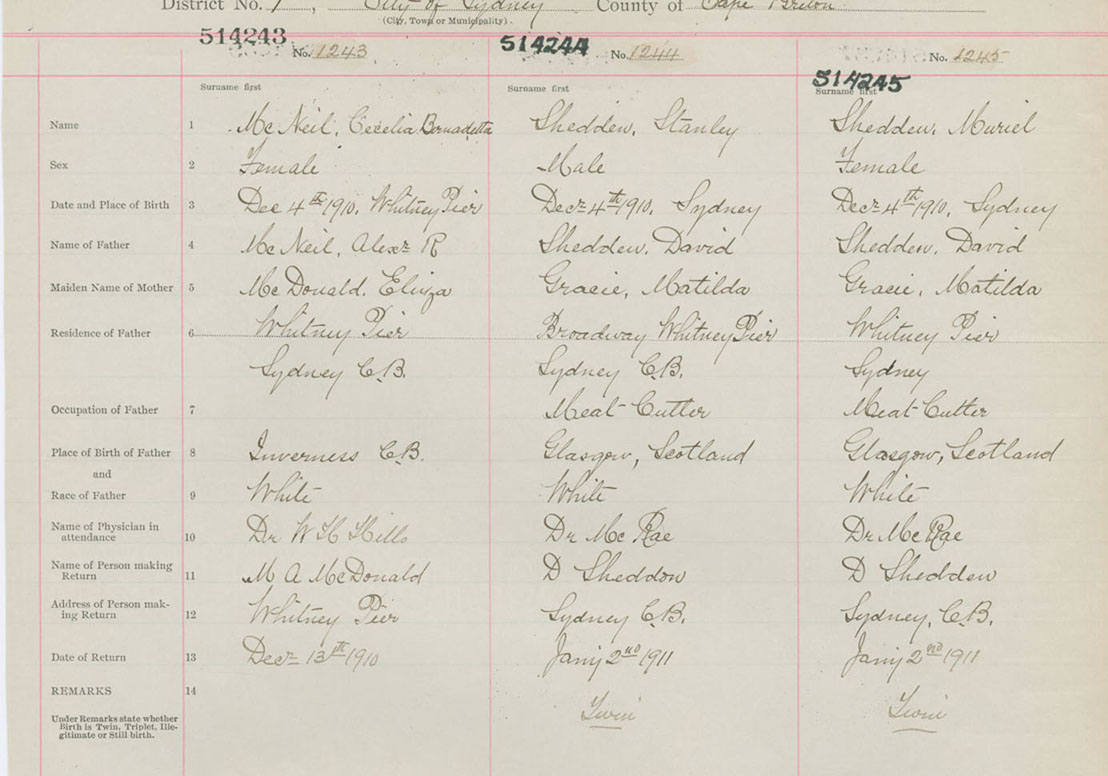 District No. 1, City of Sydney County of Cape Breton
(City, Town or Municipality).
514243 No. 1243 514244 No. 1244 514245 No. 1245
Surname first Surname first Surname first
Name 1 McNeil, Cecelia Bernadetta Shedden, Stanley Shedden, Muriel
Sex 2 Female Male Female
Date and Place of Birth 3 Dec 4th 1910, Whitney Pier Decr 4th 1910, Sydney Decr 4th 1910, Sydney
Name of Father 4 McNeil, Alexr R Shedden, David Shedden, David
Maiden Name of Mother 5 McDonald, Eliza Gracie, Matilda Gracie, Matilda
Residence of Father 6 Whitney Pier Broadway Whitney Pier Whitney Pier
Sydney C.B. Sydney C.B. Sydney
Occupation of Father 7 Meat Cutter Meat Cutter
Place of Birth of Father 8 Inverness C.B. Glasgow, Scotland Glasgow, Scotland
and
Race of Father 9 White White White
Name of Physician in
attendance 10 Dr W H Hills Dr McRae Dr McRae
Name of Person making
Return 11 M A McDonald D Sheddon D Shedden
Address of Person mak-
ing Return 12 Whitney Pier Sydney C.B. Sydney, C.B.
Date of Return 13 Decr 13th 1910 Jany 2nd 1911 Jany 2nd 1911
REMARKS 14
Under Remarks state whether Twin Twin
Birth is Twin, Triplet, Ille-
gitimate or Still birth.